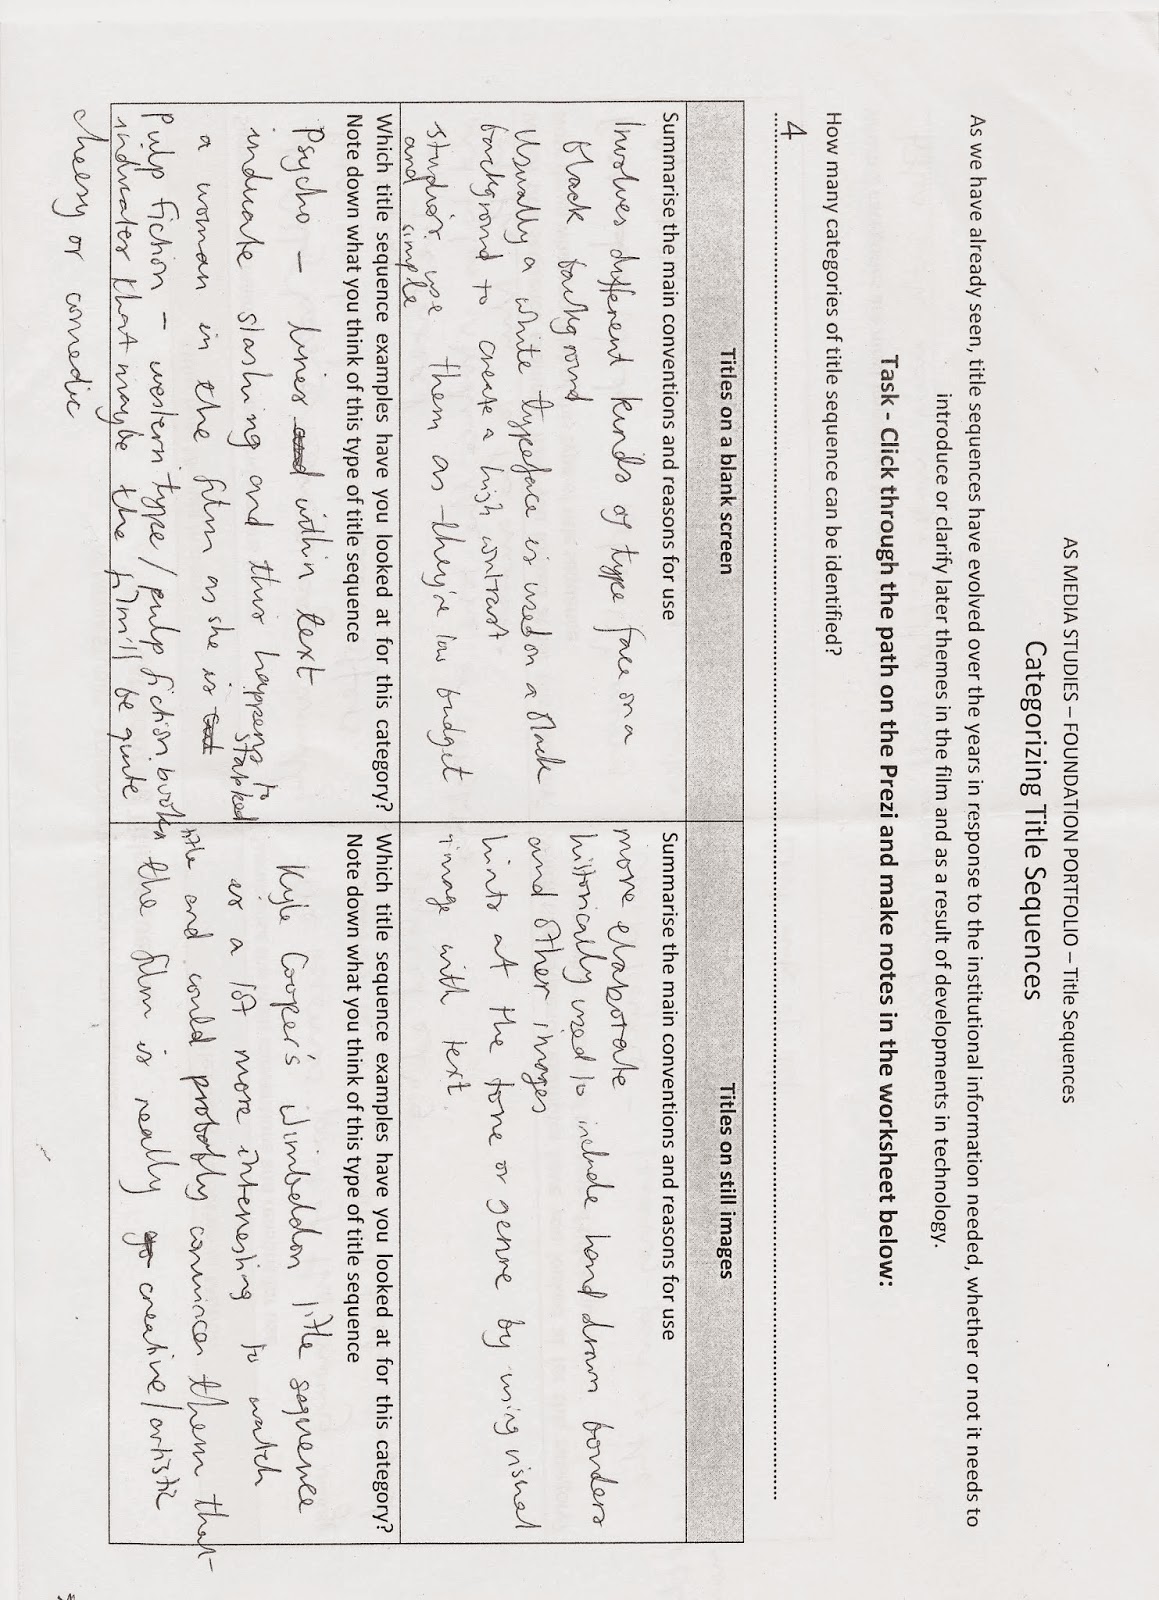 AS MEDIA STUDIES – FOUNDATION PORTFOLIO – Title Sequences
Categorizing Title Sequences
As we have already seen, title sequences have evolved over the years in response to the institutional information needed, whether or not it needs to
introduce or clarify later themes in the film and as a result of developments in technology.
Task - Click through the path on the Prezi and make notes in the worksheet below:
How many categories of title sequence can be identified?
4
Titles on a blank screen
Summarise the main conventions and reasons for use
Involves different kinds of type face on a
black background
Usually a white typeface is used on a black
background to create a high contrast
studios use them as they're low budget
and simple
Which title sequence examples have you looked at for this category?
Note down what you think of this type of title sequence
Psycho – lines within text
indicate slashing and this happens to
a woman in the film as she is stabbed
Pulp fiction – western type / pulp fiction books
indicates that maybe the film'll be quite
cheesy or comedic
Titles on still images
Summarise the main conventions and reasons for use
more elaborate
historically used to include hand drawn borders
and other images
hints at the tone or genre by using visual
image with text.
Which title sequence examples have you looked at for this category?
Note down what you think of this type of title sequence
Kyle Cooper's Wimbeldon title sequence
is a lot more interesting to watch
title and could probably convince them that
the film is really creative/artistic